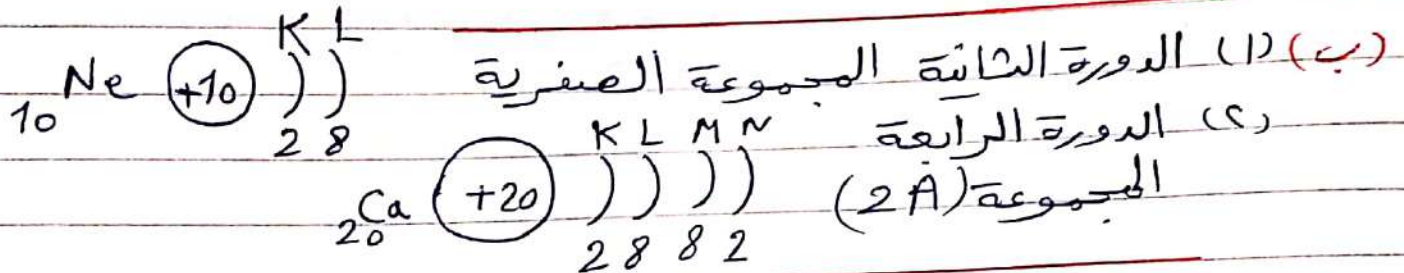 (ب) (١) الدورة الثانية المجموعة الصفرية
₁₀Ne (+10) ) )
K L
2 8
(٢) الدورة الرابعة
المجموعة (2A)
₂₀Ca (+20) ) ) ) )
K L M N
2 8 8 2